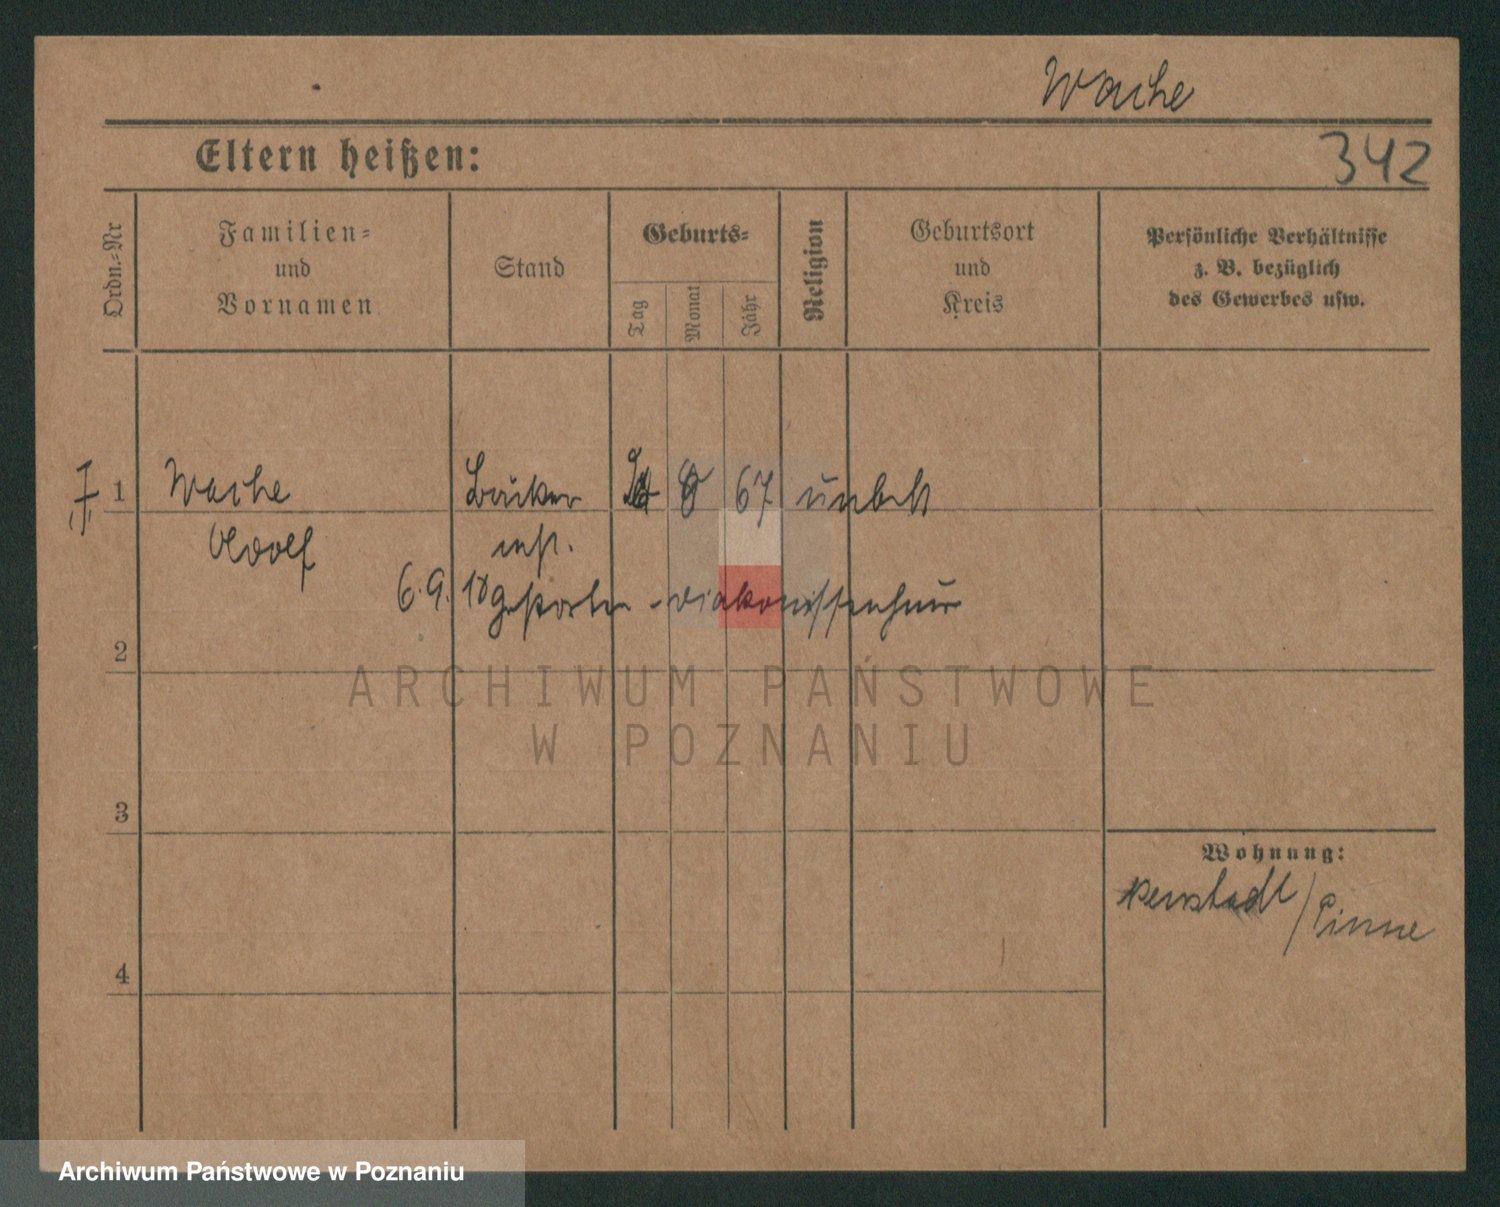 Wache
Eltern heißen:
342
Ordn.-Nr
Familien-
und
Vornamen
Stand
Geburts-
Tag
Monat
Jahr
Religion
Geburtsort
und
Kreis
Persönliche Verhältnisse
z. B. bezüglich
des Gewerbes usw.
1 Wache Bäcker 8 67 unbek
Adolf mstr.
6.9.18 gestorben - Diakonissenhaus
2
ARCHIWUM PAŃSTWOWE
W POZNANIU
3
Wohnung:
Neustadt / Pinne
4
Archiwum Państwowe w Poznaniu